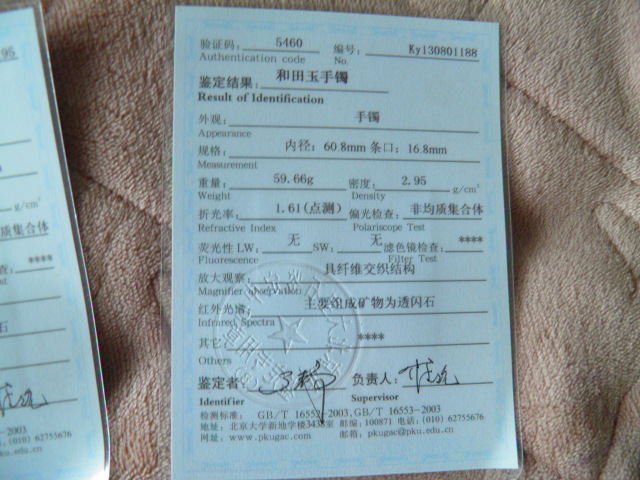 验证码: 5460 编号: Ky130801188
Authentication code No.
鉴定结果: 和田玉手镯
Result of Identification
外观: 手镯
Appearance
规格: 内径: 60.8mm 条口: 16.8mm
Measurement
重量: 59.66g 密度: 2.95 g/cm³
Weight Density
折光率: 1.61(点测) 偏光检查: 非均质集合体
Refractive Index Polariscope Test
荧光性 LW: 无 SW: 无 滤色镜检查: ****
Fluorescence Filter Test
放大观察: 具纤维交织结构
Magnifier observation
红外光谱: 主要组成矿物为透闪石
Infrared Spectra
其它: ****
Others
鉴定者: 负责人:
Identifier Supervisor
检测标准: GB/T 16552-2003, GB/T 16553-2003
地址: 北京大学新地学楼3438室 邮编: 100871 电话: (010) 62755676
网址: www.pkugac.com 邮箱: pkugac@pku.edu.cn
95
g/cm³
质集合体
****
石
-2003
: (010) 62755676
du.cn